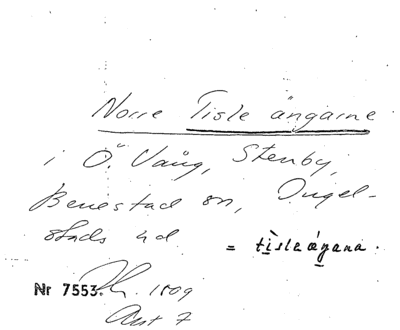 Norre Tisle ängarne
i Ö. Vång, Stenby,
Benestad sn, Ingel-
stads hd
= tìsleáŋana.
Nr 7553. 1809
Akt 7